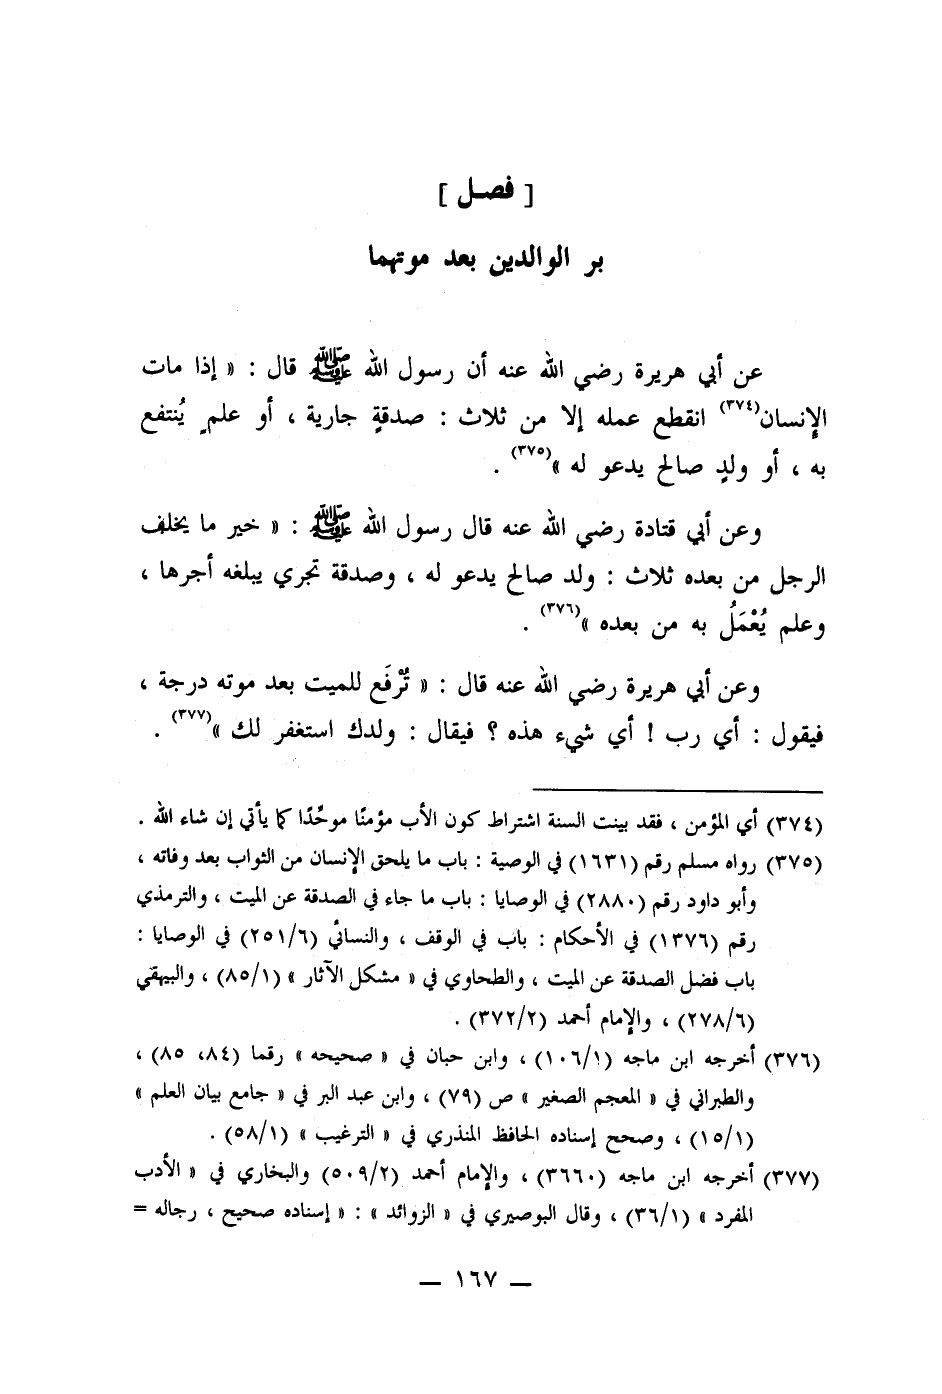 [ فصــل ]
بر الوالدين بعد موتهما
عن أبي هريرة رضي الله عنه أن رسول الله ﷺ قال : « إذا مات
الإنسان(٣٧٤) انقطع عمله إلا من ثلاث : صدقةٍ جارية ، أو علمٍ يُنتفع
به ، أو ولدٍ صالح يدعو له »(٣٧٥) .
وعن أبي قتادة رضي الله عنه قال رسول الله ﷺ : « خير ما يخلف
الرجل من بعده ثلاث : ولد صالح يدعو له ، وصدقة تجري يبلغه أجرها ،
وعلم يُعْمَلُ به من بعده »(٣٧٦) .
وعن أبي هريرة رضي الله عنه قال : « تُرْفَع للميت بعد موته درجة ،
فيقول : أي رب ! أي شيء هذه ؟ فيقال : ولدك استغفر لك »(٣٧٧) .
(٣٧٤) أي المؤمن ، فقد بينت السنة اشتراط كون الأب مؤمنًا موحِّدًا كما يأتي إن شاء الله .
(٣٧٥) رواه مسلم رقم (١٦٣١) في الوصية : باب ما يلحق الإنسان من الثواب بعد وفاته ،
وأبو داود رقم (٢٨٨٠) في الوصايا : باب ما جاء في الصدقة عن الميت ، والترمذي
رقم (١٣٧٦) في الأحكام : باب في الوقف ، والنسائي (٢٥١/٦) في الوصايا :
باب فضل الصدقة عن الميت ، والطحاوي في « مشكل الآثار » (٨٥/١) ، والبيهقي
(٢٧٨/٦) ، والإمام أحمد (٣٧٢/٢) .
(٣٧٦) أخرجه ابن ماجه (١٠٦/١) ، وابن حبان في « صحيحه » رقما (٨٤، ٨٥) ،
والطبراني في « المعجم الصغير » ص (٧٩) ، وابن عبد البر في « جامع بيان العلم »
(١٥/١) ، وصحح إسناده الحافظ المنذري في « الترغيب » (٥٨/١) .
(٣٧٧) أخرجه ابن ماجه (٣٦٦٠) ، والإمام أحمد (٥٠٩/٢) والبخاري في « الأدب
المفرد » (٣٦/١) ، وقال البوصيري في « الزوائد » : « إسناده صحيح ، رجاله =
— ١٦٧ —